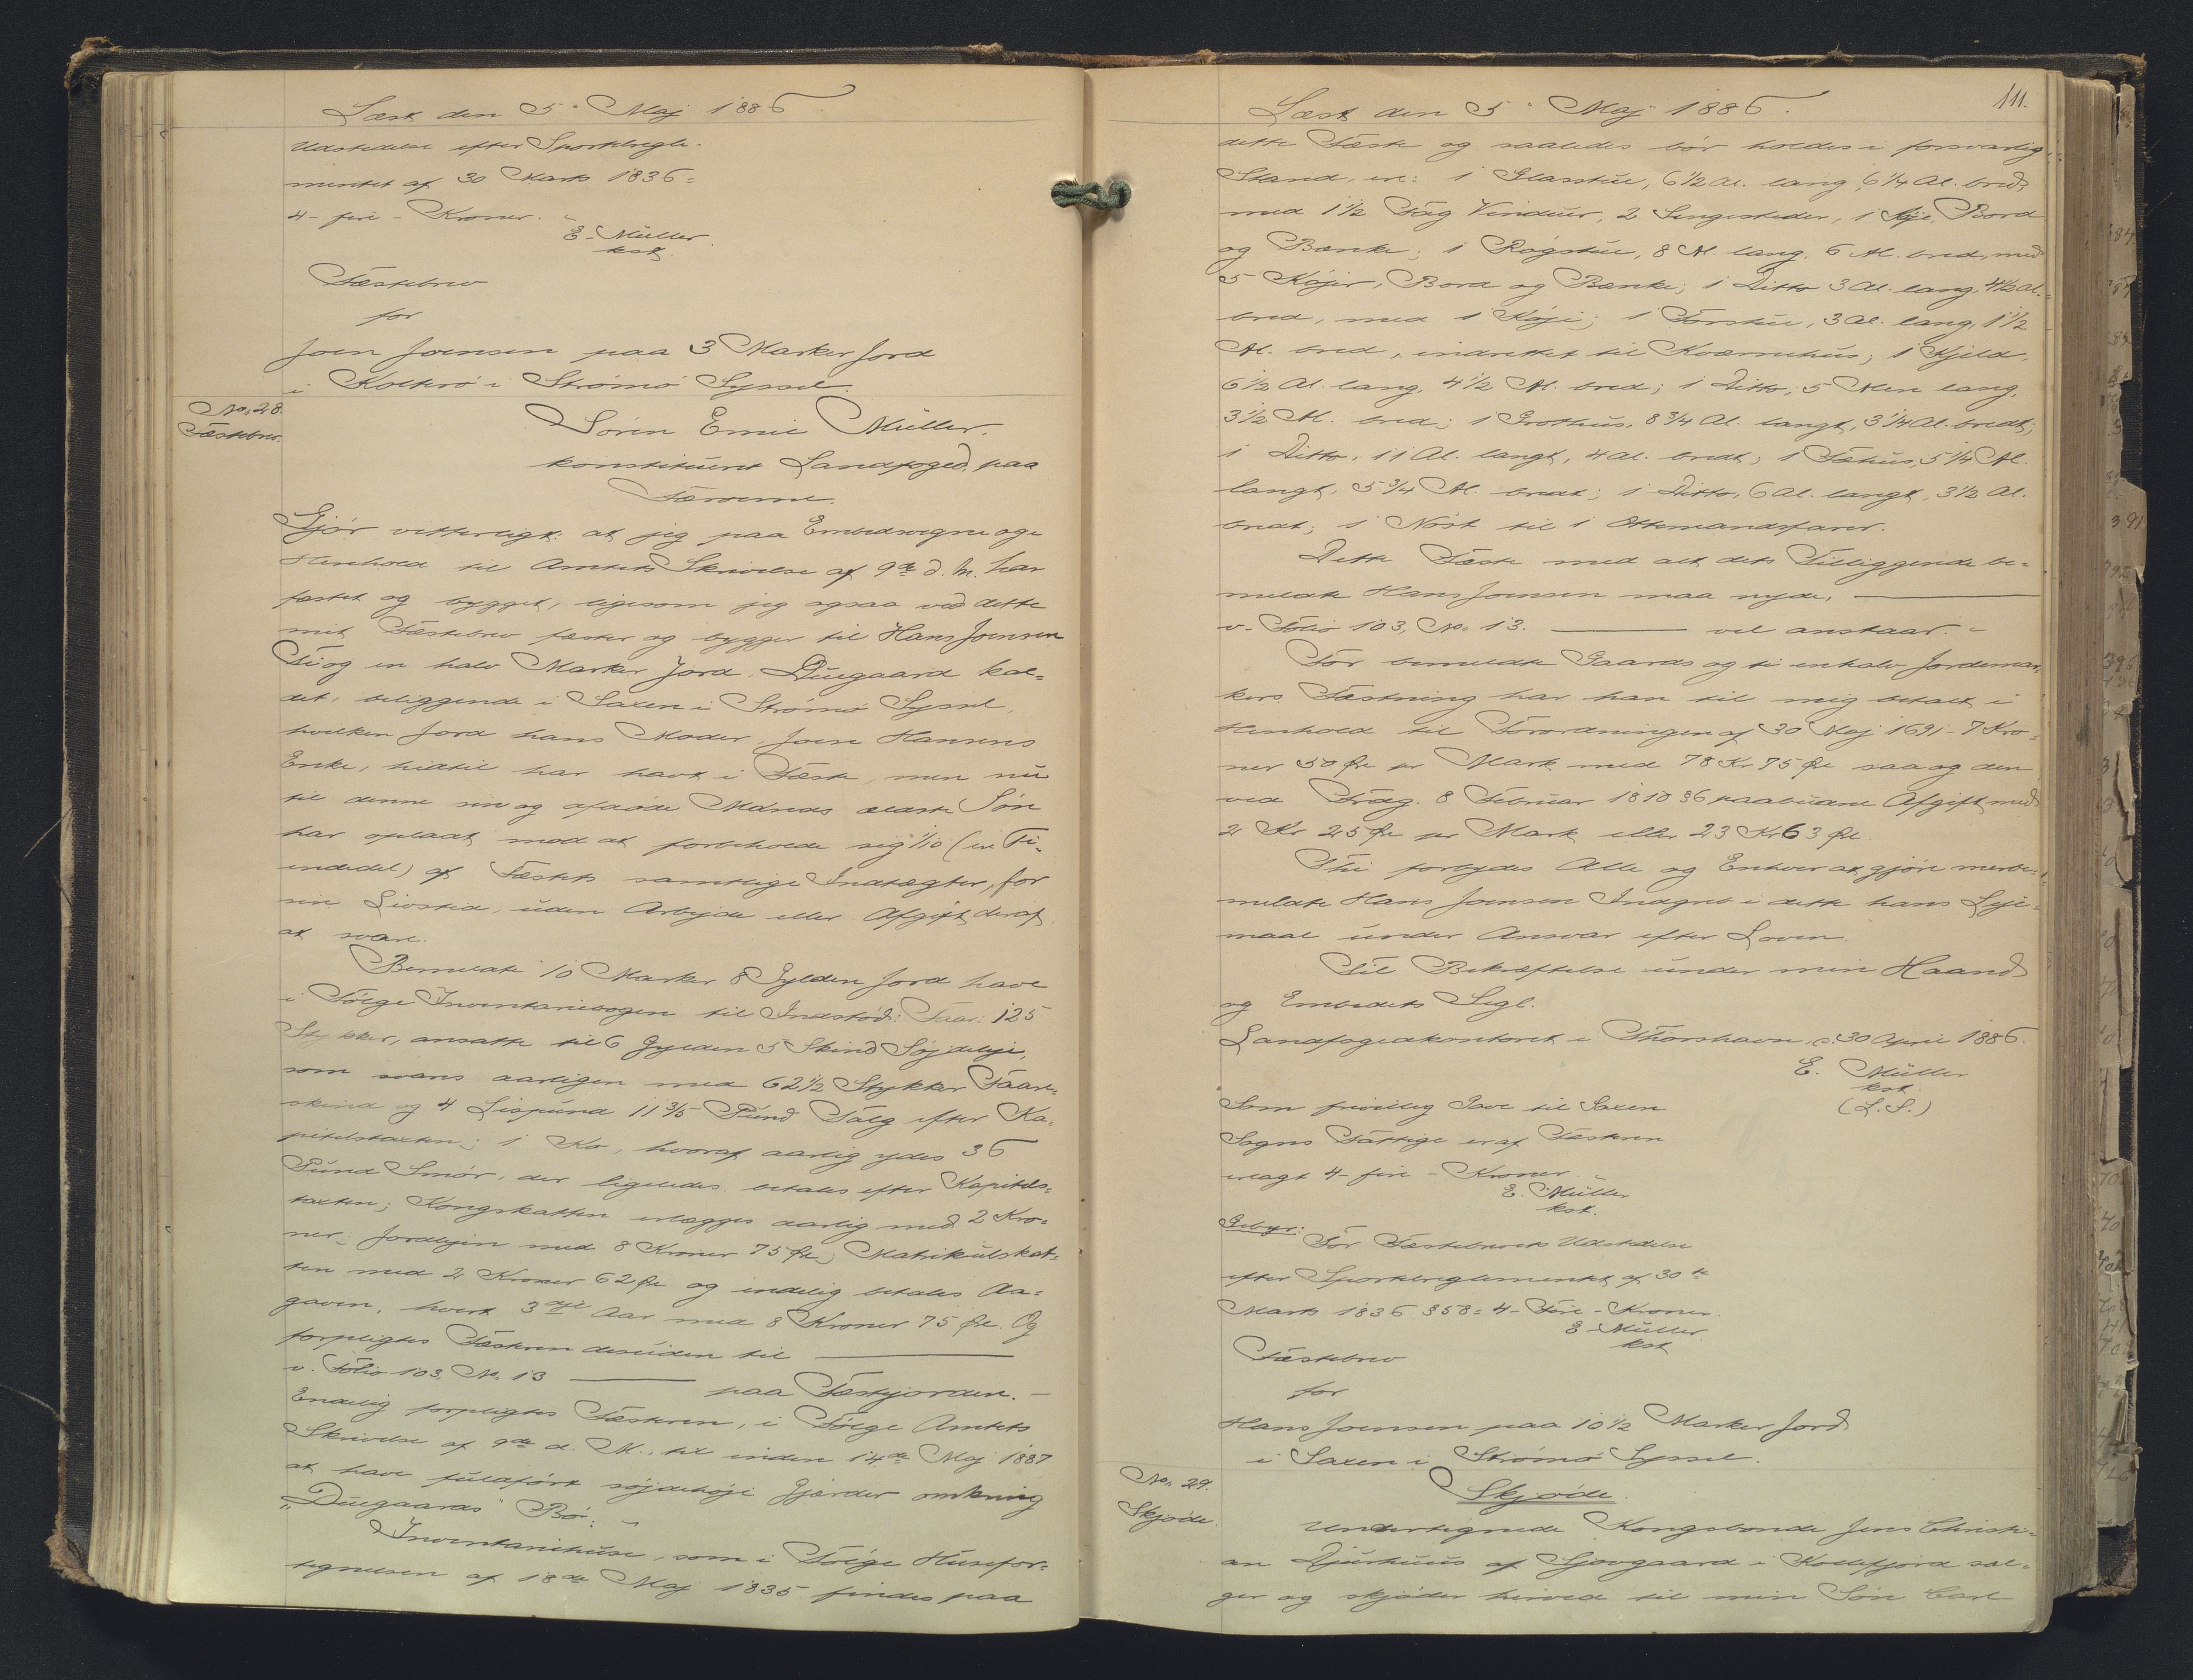 Læst den 5' Maj 1886
Udstedelse efter Sportelregle-
mentet af 30 Marts 1836 =
4 - fire - Kroner. -
E. Müller.
kst.
Fæstebrev
for
Joen Joensen paa 3 Marker Jord
i Kolterø i Strømø Syssel.
No. 28.
Fæstebrev.
Søren Emil Müller.
konstitueret Landfoged paa
Færøerne.
Gjør vitterligt: at jeg paa Embedsvegne og i
Henhold til Amtets Skrivelse af 9de d. M. har
fæstet og bygget, ligesom jeg ogsaa ved dette
mit Fæstebrev fæster og bygger til Hans Joensen
Ti og en halv Marker Jord, Duegaard kal-
det, beliggende i Saxen i Strømø Syssel,
hvilken Jord hans Moder, Joen Hansens
Enke, hidtil har havt i Fæste, men nu
til denne sin og afdøde Mands ældste Søn
har opladt mod at forbeholde sig 1/10 (en Ti-
endedel) af Fæstets samtlige Indtægter, for
sin Livstid, uden Arbejde eller Afgift deraf
at svare.
Bemeldte 10 Marker 8 Gylden Jord have
i Følge Inventariebogen til Indstød: Faar: 125
Stykker, ansatte til 6 Gylden 5 Skind Søjdeleje,
som svares aarligen med 62 1/2 Stykker Faare-
skind og 4 Lispund 11 3/5 Pund Talg efter Ka-
pitelstaxten; 1 Ko, hvoraf aarlig ydes 36
Pund Smør, der ligeledes betales efter Kapitels-
taxten; Kongskatten erlægges aarlig med 2 Kro-
ner; Jordlejen med 8 Kroner 75 Øre; Matrikulskat-
ten med 2 Kroner 62 Øre og endelig betales Aa-
gaven, hvert 3die Aar med 8 Kroner 75 Øre. Og
forpligtes Fæsteren desuden til ———
v. Folio 103, No. 13 ——— paa Fæstejorden. -
Endelig forpligtes Fæsteren, i Følge Amtets
Skrivelse af 9de d. M., til inden 14de Maj 1887
at have fuldført søjdehøje Gjærder omkring
"Duegaards" Bø: -
Inventariehuse, som i Følge Husefor-
tegnelsen af 18de Maj 1835 findes paa
111.
Læst den 5' Maj 1886.
dette Fæste og saaledes bør holdes i forsvarlig
Stand, ere: 1 Glasstue, 6 1/2 Al. lang 6 1/4 Al. bred,
med 1 1/2 Fag Vinduer, 2 Sengesteder, 1 Køje, Bord
og Bænke; 1 Røgstue, 8 Al. lang, 6 Al. bred, med
5 Køjer, Bord og Bænke; 1 Ditto 3 Al. lang, 4 1/2 Al.
bred, med 1 Køje; 1 Forstue, 3 Al. lang, 1 1/2
Al. bred, indrettet til Kværnehus; 1 Hjeld,
6 1/2 Al. lang, 4 1/2 Al. bred; 1 Ditto, 5 Alen lang,
3 1/2 Al. bred; 1 Grothus, 8 3/4 Al. langt, 3 1/4 Al. bredt;
1 Ditto, 11 Al. langt, 4 Al. bredt; 1 Fæhus, 5 1/4 Al.
langt, 5 3/4 Al. bredt; 1 Ditto, 6 Al. langt, 3 1/2 Al.
bredt; 1 Nøst til 1 Ottemandsfarer.
Dette Fæste med alt dets Tilliggende be-
meldte Hans Joensen maa nyde, ———
v. Folio 103, No. 13. ——— vel anstaar. -
For bemeldte Gaards og ti enhalv Jordemar-
kers Fæstning har han til mig betalt i
Henhold til Forordningen af 30 Maj 1691 - 7 Kro-
ner 50 Øre pr Mark med 78 Kr 75 Øre saa og den
ved Frdg. 8 Februar 1810 § 6 paabudne Afgift med
2 Kr 25 Øre pr Mark eller 23 Kr 63 Øre.
Thi forbydes Alle og Enhver at gjøre merbe-
meldte Hans Joensen Indgreb i dette hans Leje-
maal under Ansvar efter Loven.
Til Bekræftelse under min Haand
og Embedets Segl.
Landfogedkontoret i Thorshavn, d. 30 April 1886.
E. Müller
kst.
(L.S.)
Som frivillig Gave til Saxen
Sogns Fattige er af Fæsteren
erlagt 4 - fire - Kroner. -
E. Müller
kst.
Gebyr:
For Fæstebrevets Udstedelse
efter Sportelreglementet af 30te
Marts 1836 § 58 = 4 - Fire - Kroner.
E. Müller
kst
Fæstebrev
for
Hans Joensen paa 10 1/2 Marker Jord
i Saxen i Strømø Syssel.
No. 29.
Skjøde.
Skjøde.
Undertegnede Kongsbonde Jens Christi-
an Djurhuus af Sjovgaard i Kollefjord sæl-
ger og skjøder herved til min Søn Carl